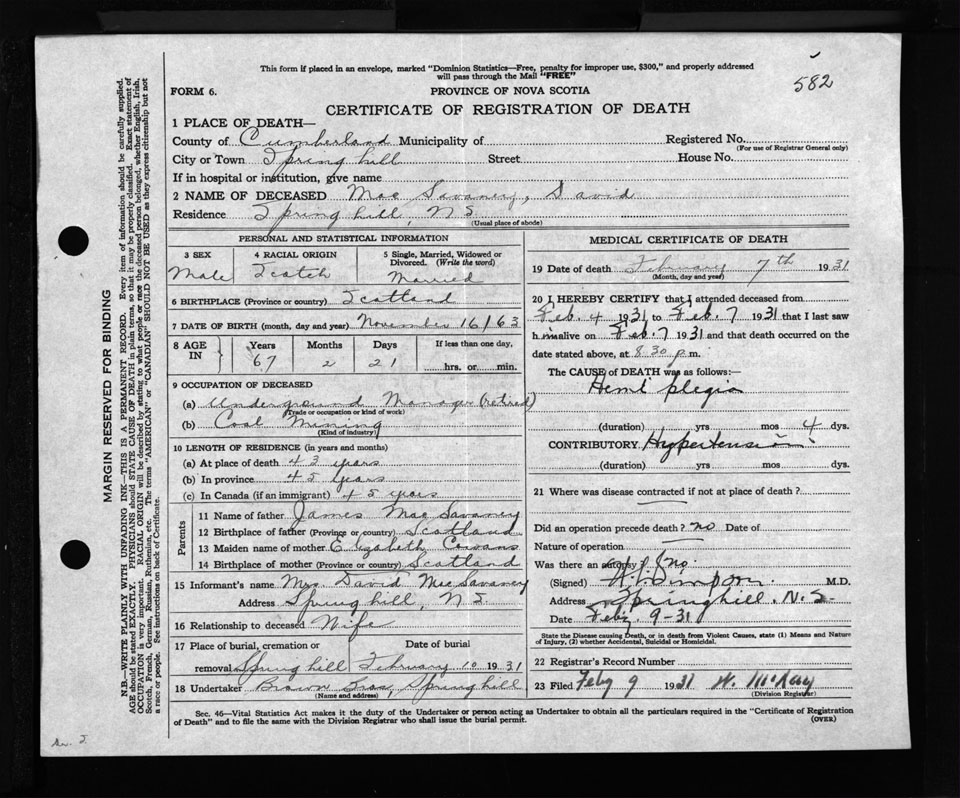 582
This form if placed in an envelope, marked "Dominion Statistics—Free, penalty for improper use, $300," and properly addressed
will pass through the Mail "FREE"
FORM 6.
PROVINCE OF NOVA SCOTIA
CERTIFICATE OF REGISTRATION OF DEATH
1 PLACE OF DEATH—
County of Cumberland Municipality of Registered No.
(For use of Registrar General only)
City or Town Spring hill Street House No.
If in hospital or institution, give name
2 NAME OF DECEASED Mac Savaney, David
Residence Spring hill, N S.
(Usual place of abode)
PERSONAL AND STATISTICAL INFORMATION
3 SEX 4 RACIAL ORIGIN 5 Single, Married, Widowed or
Divorced. (Write the word)
Male Scotch Married
6 BIRTHPLACE (Province or country) Scotland
7 DATE OF BIRTH (month, day and year) November 16/63
8 AGE IN Years Months Days If less than one day,
67 2 21 hrs. or min.
9 OCCUPATION OF DECEASED
(a) Underground Manager (retired)
(Trade or occupation or kind of work)
(b) Coal Mining
(Kind of industry)
10 LENGTH OF RESIDENCE (in years and months)
(a) At place of death 43 years
(b) In province 45 years
(c) In Canada (if an immigrant) 45 years
Parents
11 Name of father James Mac Savaney
12 Birthplace of father (Province or country) Scotland
13 Maiden name of mother Elizabeth Cowans
14 Birthplace of mother (Province or country) Scotland
15 Informant's name Mrs. David MacSavaney
Address Spring hill, N S.
16 Relationship to deceased Wife
17 Place of burial, cremation or Date of burial
removal Spring hill February 10 1931
18 Undertaker Brown Bros, Springhill
(Name and address)
MEDICAL CERTIFICATE OF DEATH
19 Date of death February 7th 1931
(Month, day and year)
20 I HEREBY CERTIFY that I attended deceased from
Feb. 4 1931 to Feb. 7 1931 that I last saw
him alive on Feb. 7 1931 and that death occurred on the
date stated above, at 8.30 p.m.
The CAUSE of DEATH was as follows:—
Hemi plegia
(duration) yrs mos 4 dys.
CONTRIBUTORY Hypertension
(duration) yrs mos dys.
21 Where was disease contracted if not at place of death?
Did an operation precede death? no Date of
Nature of operation
Was there an autopsy? no.
(Signed) Simpson. M.D.
Address Springhill. N.S.
Date Feby 9-31
State the Disease causing Death, or in death from Violent Causes, state (1) Means and Nature
of Injury, (2) whether Accidental, Suicidal or Homicidal.
22 Registrar's Record Number
23 Filed Feby 9 1931 W. McKay
(Division Registrar)
Sec. 46—Vital Statistics Act makes it the duty of the Undertaker or person acting as Undertaker to obtain all the particulars required in the "Certificate of Registration
of Death" and to file the same with the Division Registrar who shall issue the burial permit.
(OVER)
MARGIN RESERVED FOR BINDING
N.B.—WRITE PLAINLY WITH UNFADING INK—THIS IS A PERMANENT RECORD. Every item of information should be carefully supplied.
AGE should be stated EXACTLY. PHYSICIANS should STATE CAUSE OF DEATH in plain terms, so that it may be properly classified. Exact statement of
OCCUPATION is very important. RACIAL ORIGIN will be described by stating to what people or race the deceased person belonged, whether English, Irish,
Scotch, French, German, Russian, Ruthenian, etc. The terms "AMERICAN" or "CANADIAN" SHOULD NOT BE USED as they express citizenship but not
a race or people. See instructions on back of Certificate.